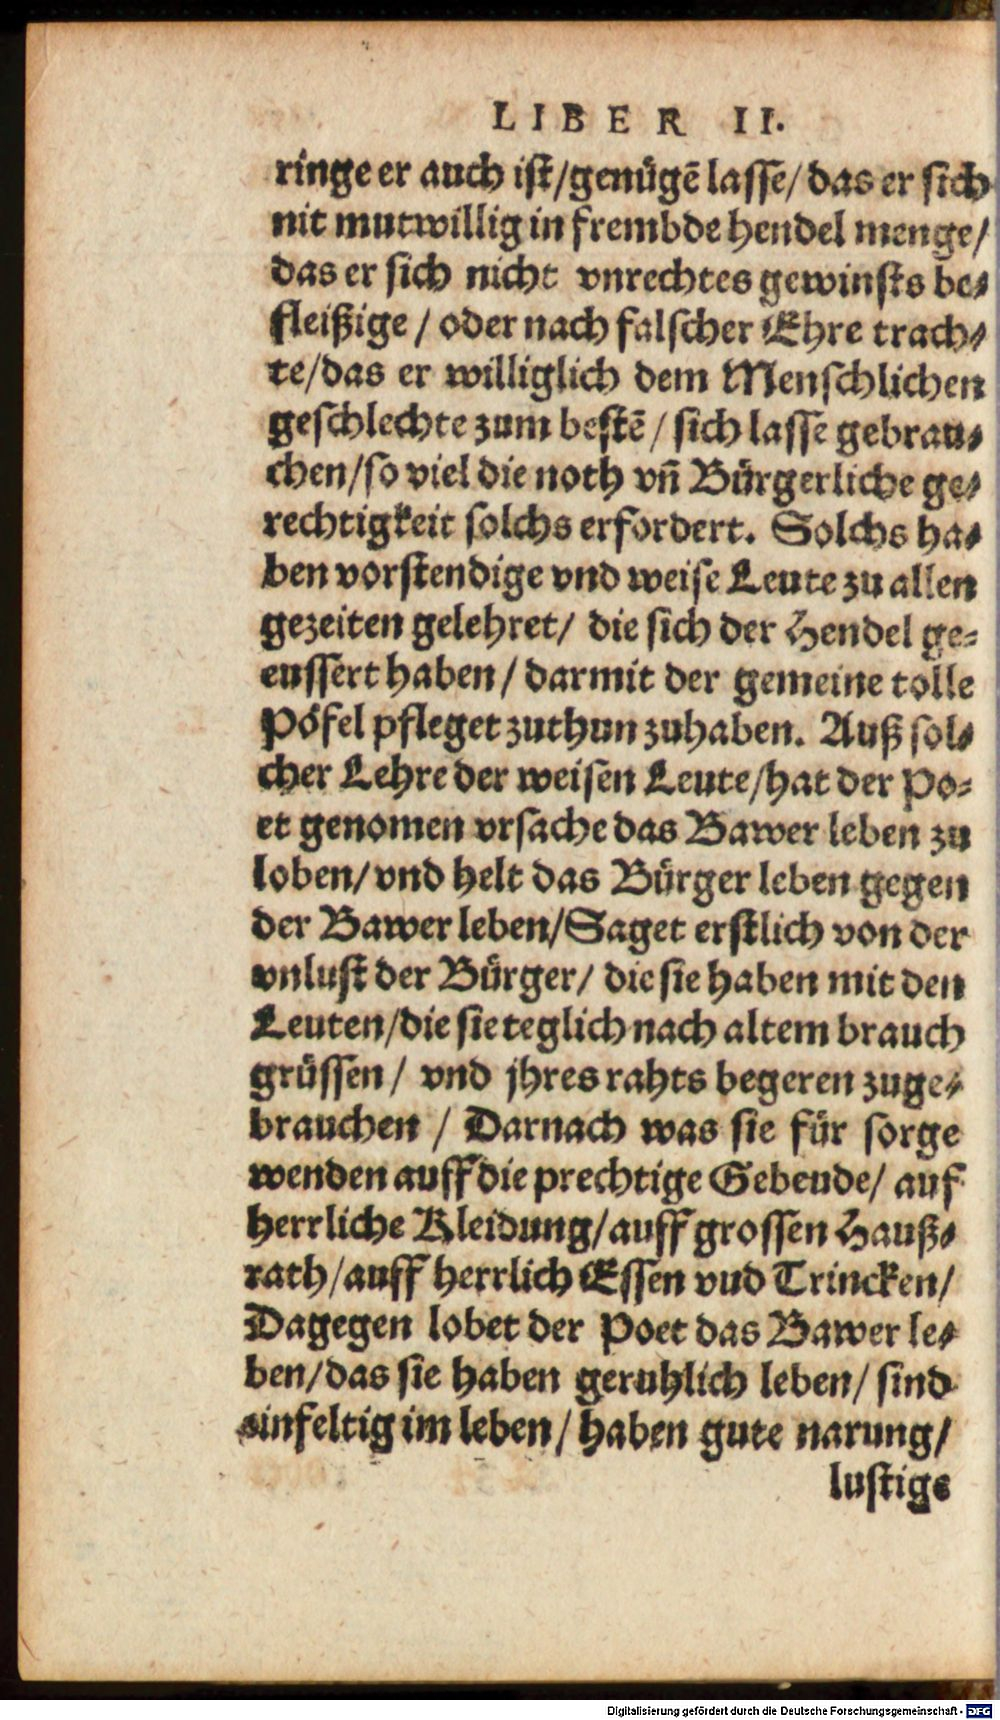 LIBER II.
ringe er auch ist/genügẽ lasse/ das er sich
nit mutwillig in frembde hendel menge/
das er sich nicht vnrechtes gewinsts be-
fleißige / oder nach falscher Ehre trach-
te/das er williglich dem Menschlichen
geschlechte zum bestẽ / sich lasse gebrau-
chen/so viel die noth vñ Bürgerliche ge-
rechtigkeit solchs erfordert. Solchs ha-
ben vorstendige vnd weise Leute zu allen
gezeiten gelehret/ die sich der Hendel ge-
eussert haben/ darmit der gemeine tolle
Pöfel pfleget zuthun zuhaben. Auß sol-
cher Lehre der weisen Leute/hat der Po-
et genomen vrsache das Bawer leben zu
loben/vnd helt das Bürger leben gegen
der Bawer leben/Saget erstlich von der
vnlust der Bürger/ die sie haben mit den
Leuten/die sie teglich nach altem brauch
grüssen/ vnd jhres rahts begeren zuge-
brauchen / Darnach was sie für sorge
wenden auff die prechtige Gebeude/ auf
herrliche Kleidung/auff grossen Hauß-
rath/auff herrlich Essen vud Trincken/
Dagegen lobet der Poet das Bawer le-
ben/das sie haben geruhlich leben/ sind
einfeltig im leben/ haben gute narung/
lustige
Digitalisierung gefördert durch die Deutsche Forschungsgemeinschaft - DFG